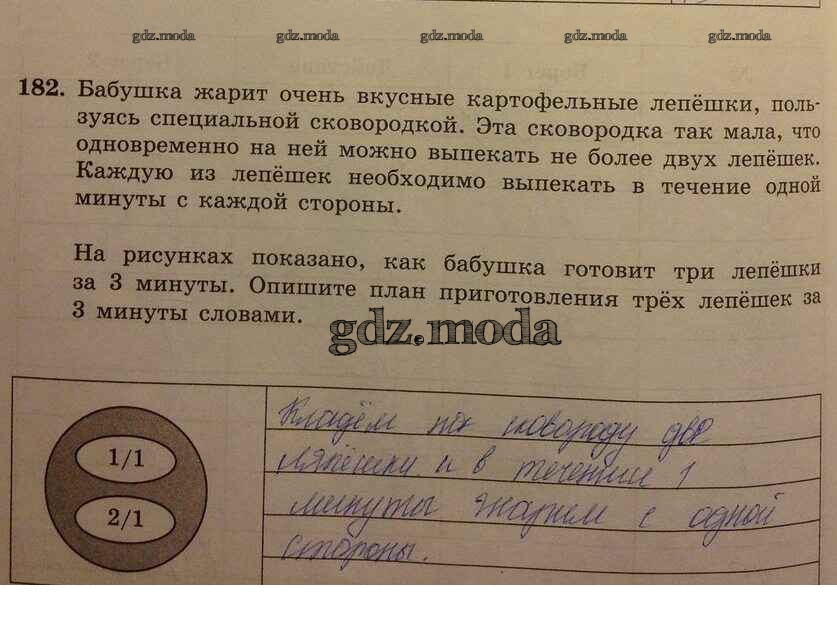 gdz.moda gdz.moda gdz.moda gdz.moda gdz.moda
182. Бабушка жарит очень вкусные картофельные лепёшки, поль-
зуясь специальной сковородкой. Эта сковородка так мала, что
одновременно на ней можно выпекать не более двух лепёшек.
Каждую из лепёшек необходимо выпекать в течение одной
минуты с каждой стороны.
На рисунках показано, как бабушка готовит три лепёшки
за 3 минуты. Опишите план приготовления трёх лепёшек за
3 минуты словами.
gdz.moda
1/1
2/1
Кладём на сковороду две
ляпёшки и в течении 1
минуты жарим с одной
стороны.